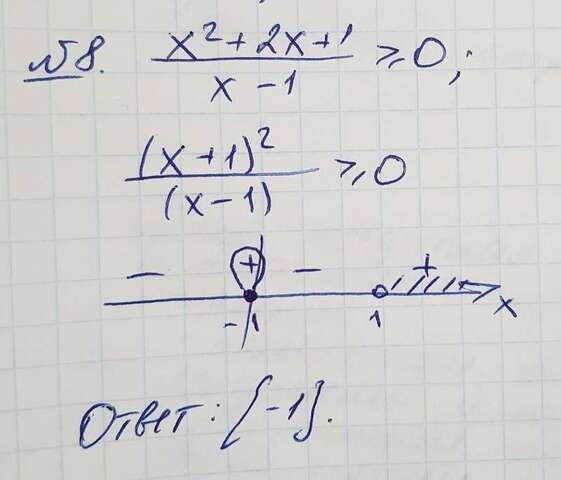 №8. (x²+2x+1)/(x-1) ≥0;
(x+1)²/(x-1) ≥0
- + - +
-1 1 x
Ответ: {-1}.